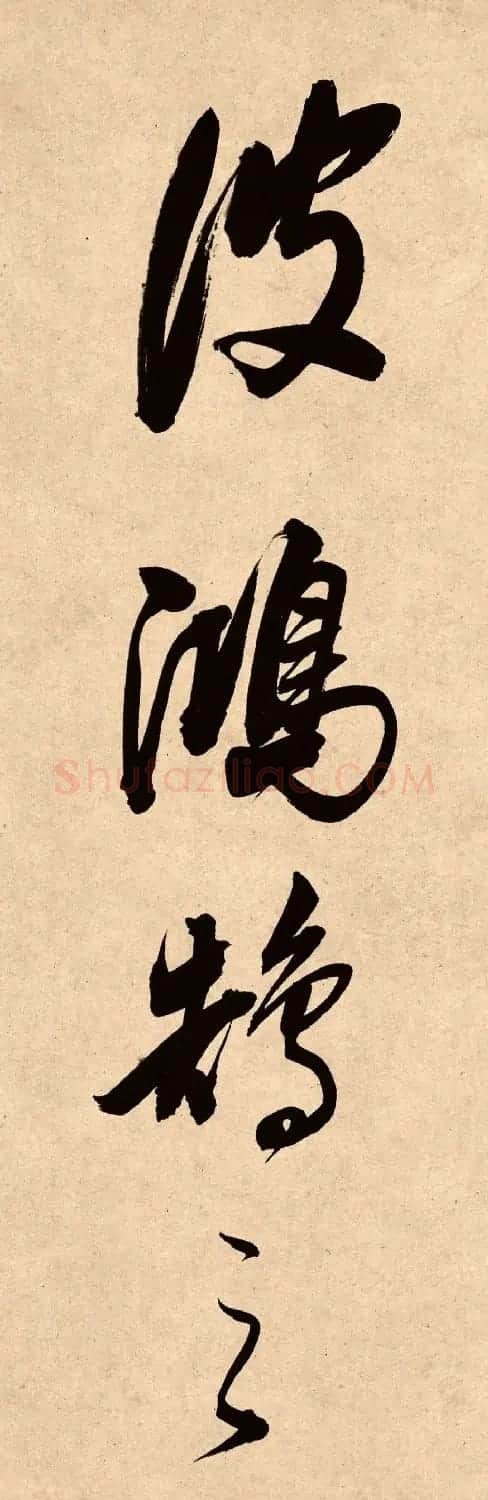 彼
鴻
鵠
之
Shufaziliao.COM